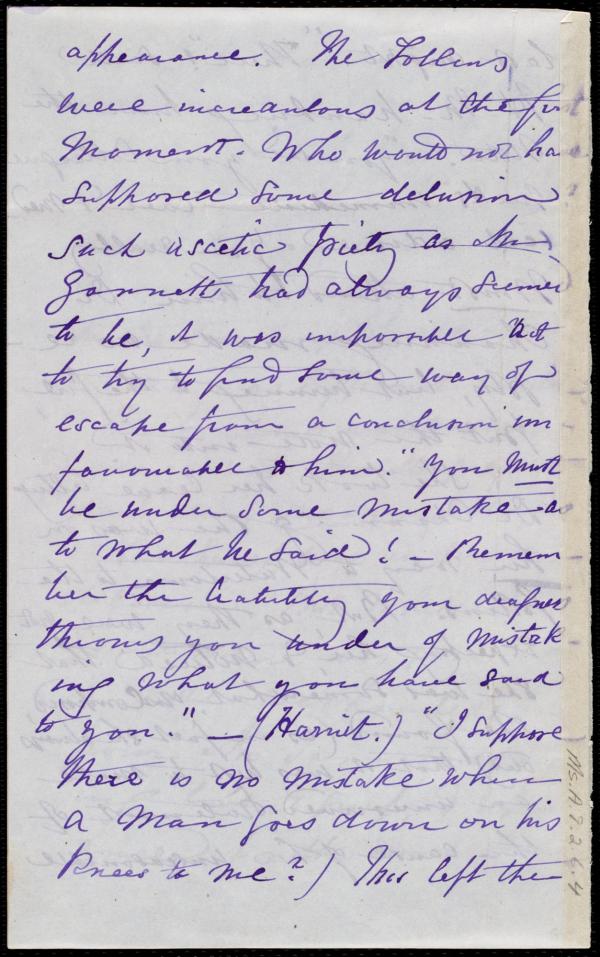 appearance. The Follens
were increaulous at the fir
moment. Who would not ha
supposed some delusion
such ascetic piety as Mr.
Gannett had always seemed
to be, it was impossible not
to try to find some way of
escape from a conclusion un
favourable to him. "You must
be under some mistake as
to what he said! — Remem
ber the liability your deafness
throws you under of mistak
ing what you have said
to you." — (Harriet.) "I suppose
there is no mistake when
a man goes down on his
knees to me?) This left the
Ms.A.7.2.6.4